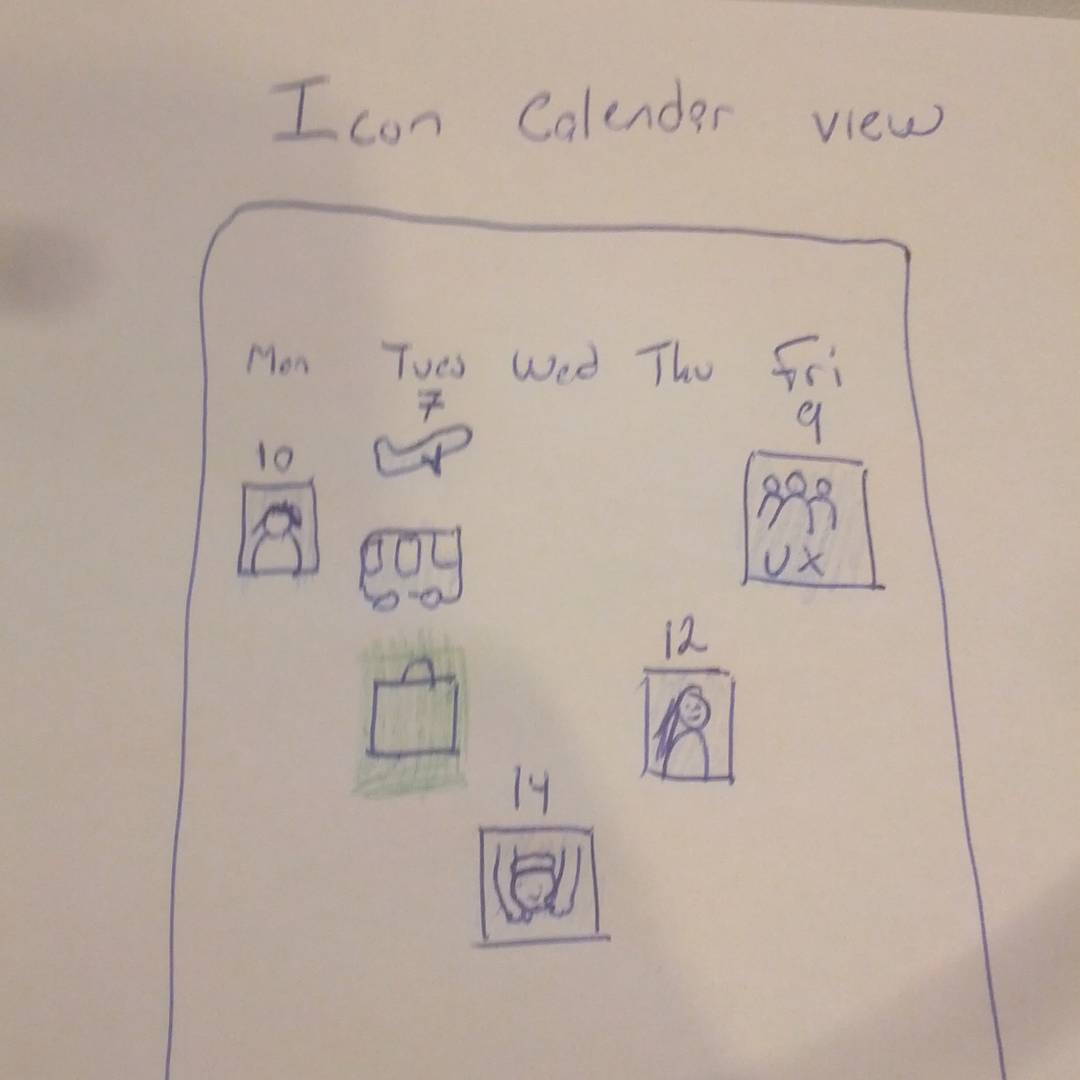 Icon Calender view
Mon Tues Wed Thu Fri
7 9
10
UX
12
14